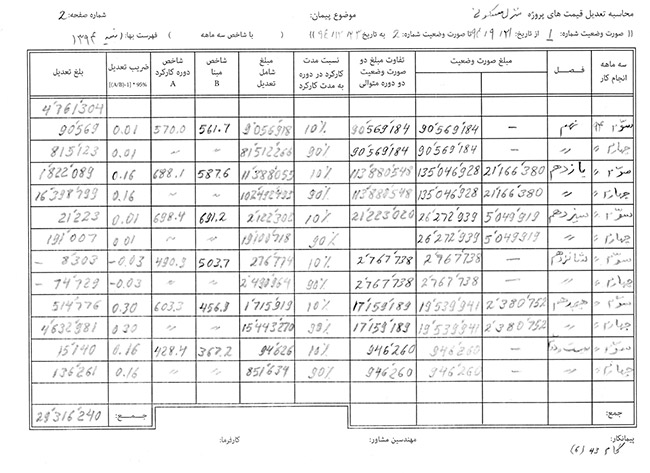 محاسبه تعدیل قیمت های پروژه منزل مسکونی موضوع پیمان: شماره صفحه: 2
(( صورت وضعیت شماره: 1 از تاریخ: تا صورت وضعیت شماره: 2 به تاریخ )) (( با شاخص سه ماهه )) فهرست بها: ابنیه 1394
سه ماهه انجام کار فصل مبلغ صورت وضعیت تفاوت مبلغ دو صورت وضعیت دو دوره متوالی نسبت مدت کارکرد در دوره به مدت کارکرد مبلغ شامل تعدیل شاخص مبنا B شاخص دوره کارکرد A ضریب تعدیل [(A/B)-1] * 95% بلغ تعدیل
4'761'304
سوم 94 نهم — 90'569'184 90'569'184 10% 9'056'918 561.7 570.0 0.01 90'569
چهارم " " — 90'569'184 90'569'184 90% 81'512'266 " " 0.01 815'123
سوم " یازدهم 21'166'380 135'046'928 113'880'548 10% 11'388'055 587.6 688.1 0.16 1'822'089
چهارم " " 21'166'380 135'046'928 113'880'548 90% 102'492'493 " " 0.16 16'398'799
سوم " سیزدهم 5'049'919 26'272'939 21'223'020 10% 2'122'302 691.2 698.4 0.01 21'223
چهارم " 5'049'919 26'272'939 90% 19'101'718 " " 0.01 191'007
سوم " شانزدهم — 2'767'738 2'767'738 10% 276'774 503.7 490.3 -0.03 - 8'303
چهارم " " — 2'767'738 2'767'738 90% 2'490'964 " " -0.03 - 74'729
سوم " هجدهم 2'380'752 19'539'941 17'159'189 10% 1'715'919 456.9 603.3 0.30 514'776
چهارم " " 2'380'752 19'539'941 17'159'189 90% 15'443'270 " " 0.30 4'632'981
سوم " — 946'260 946'260 10% 94'626 367.2 428.4 0.16 15'140
چهارم " " — 946'260 946'260 90% 851'634 " " 0.16 136'261
جمع: جمع: 29'316'240
پیمانکار: مهندسین مشاور: کارفرما:
گام 43 (6)